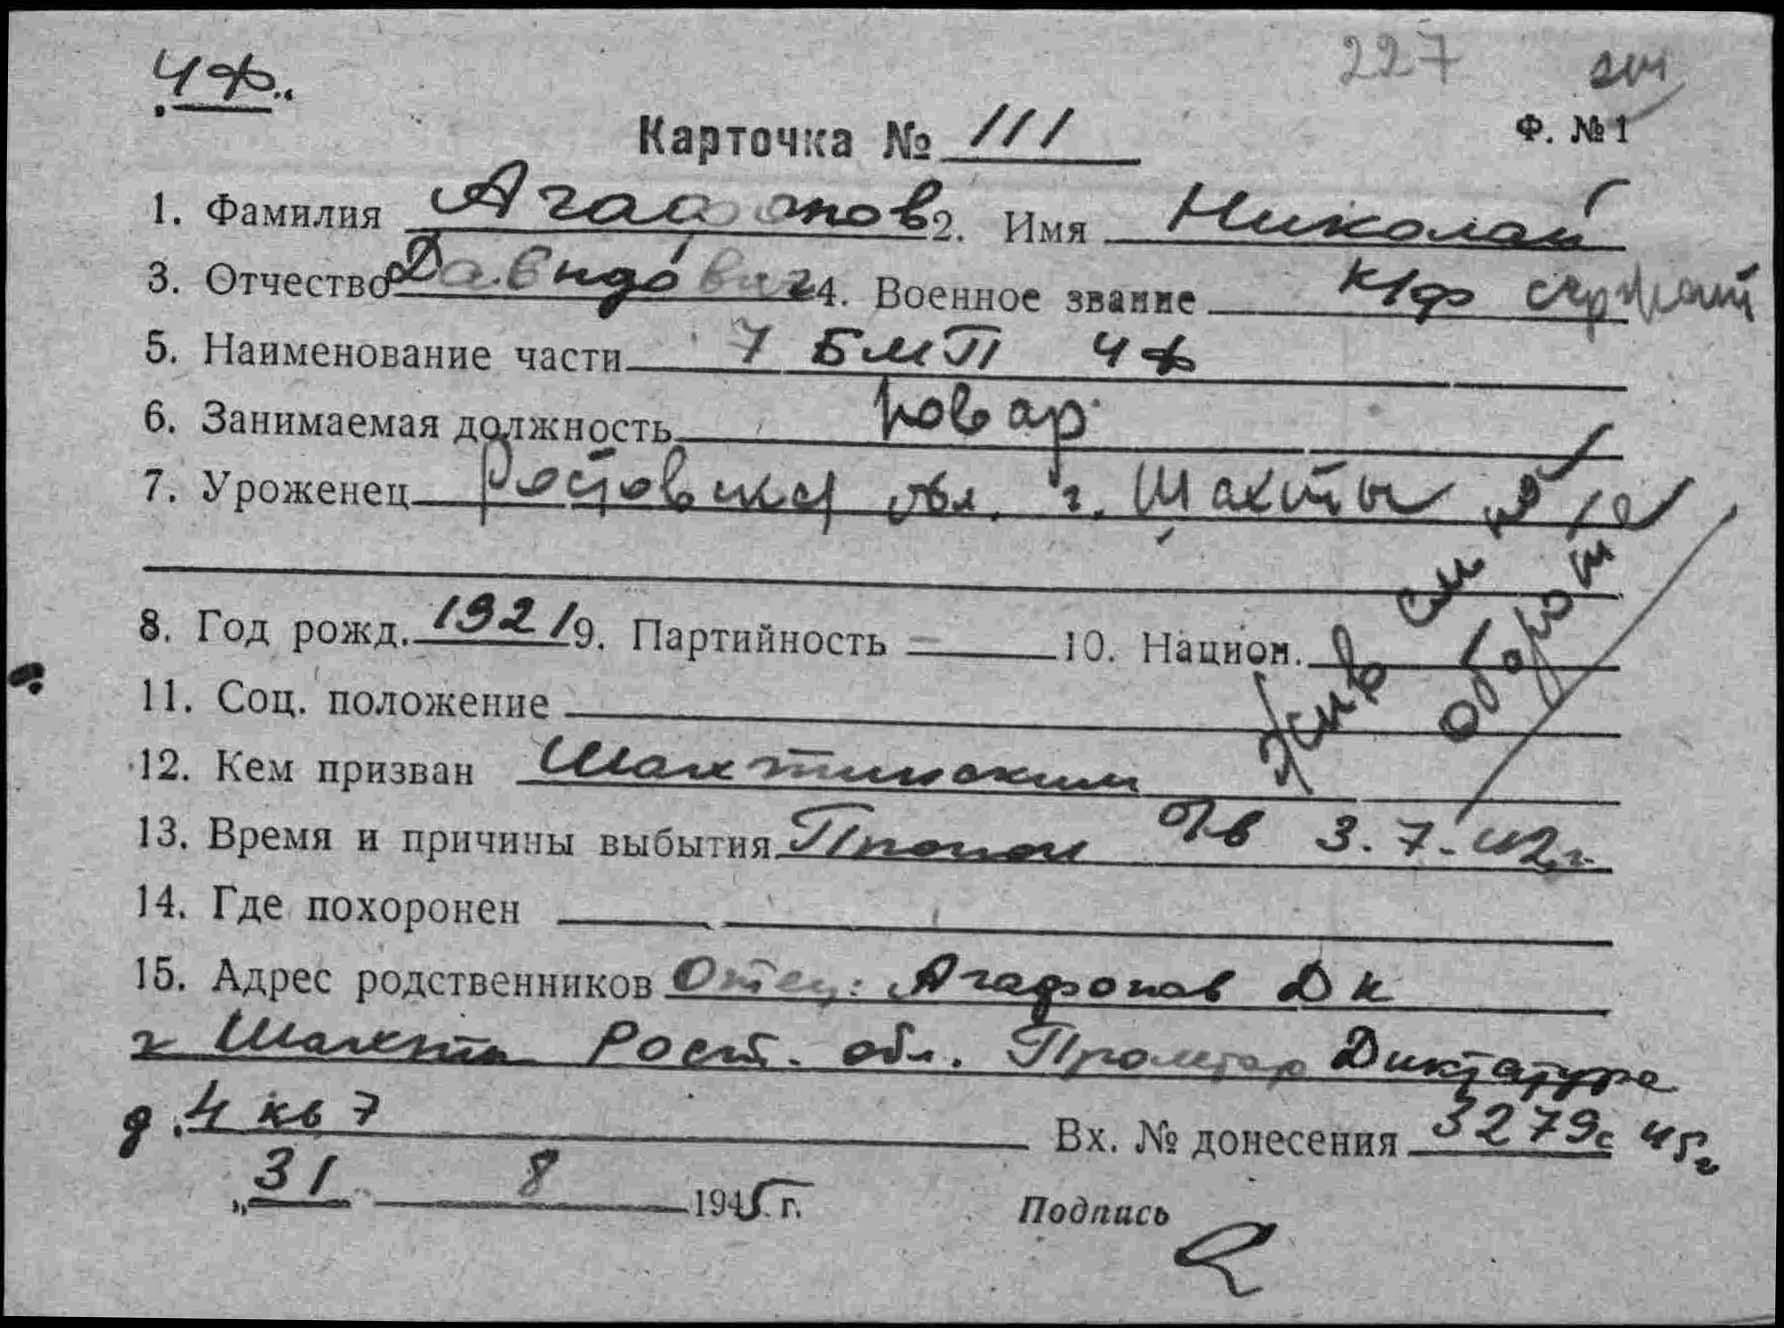 227
„ЧФ“
Карточка № 111
Ф. № 1
1. Фамилия Агафонов 2. Имя Николай
3. Отчество Давидович 4. Военное звание к/ф сержант
5. Наименование части 7 БМП ЧФ
6. Занимаемая должность повар
7. Уроженец Ростовская обл. г. Шахты
8. Год рожд. 1921 9. Партийность — 10. Национ.
Жив см на
обороте
11. Соц. положение
12. Кем призван Шахтинским
13. Время и причины выбытия Пропал б/в 3.7.42 г.
14. Где похоронен
15. Адрес родственников Отец: Агафонов Д К
г Шахты Рост. обл. Диктатура
д. 4 кв 7 Вх. № донесения 3279с 45г
„31 8 1945 г.
Подпись